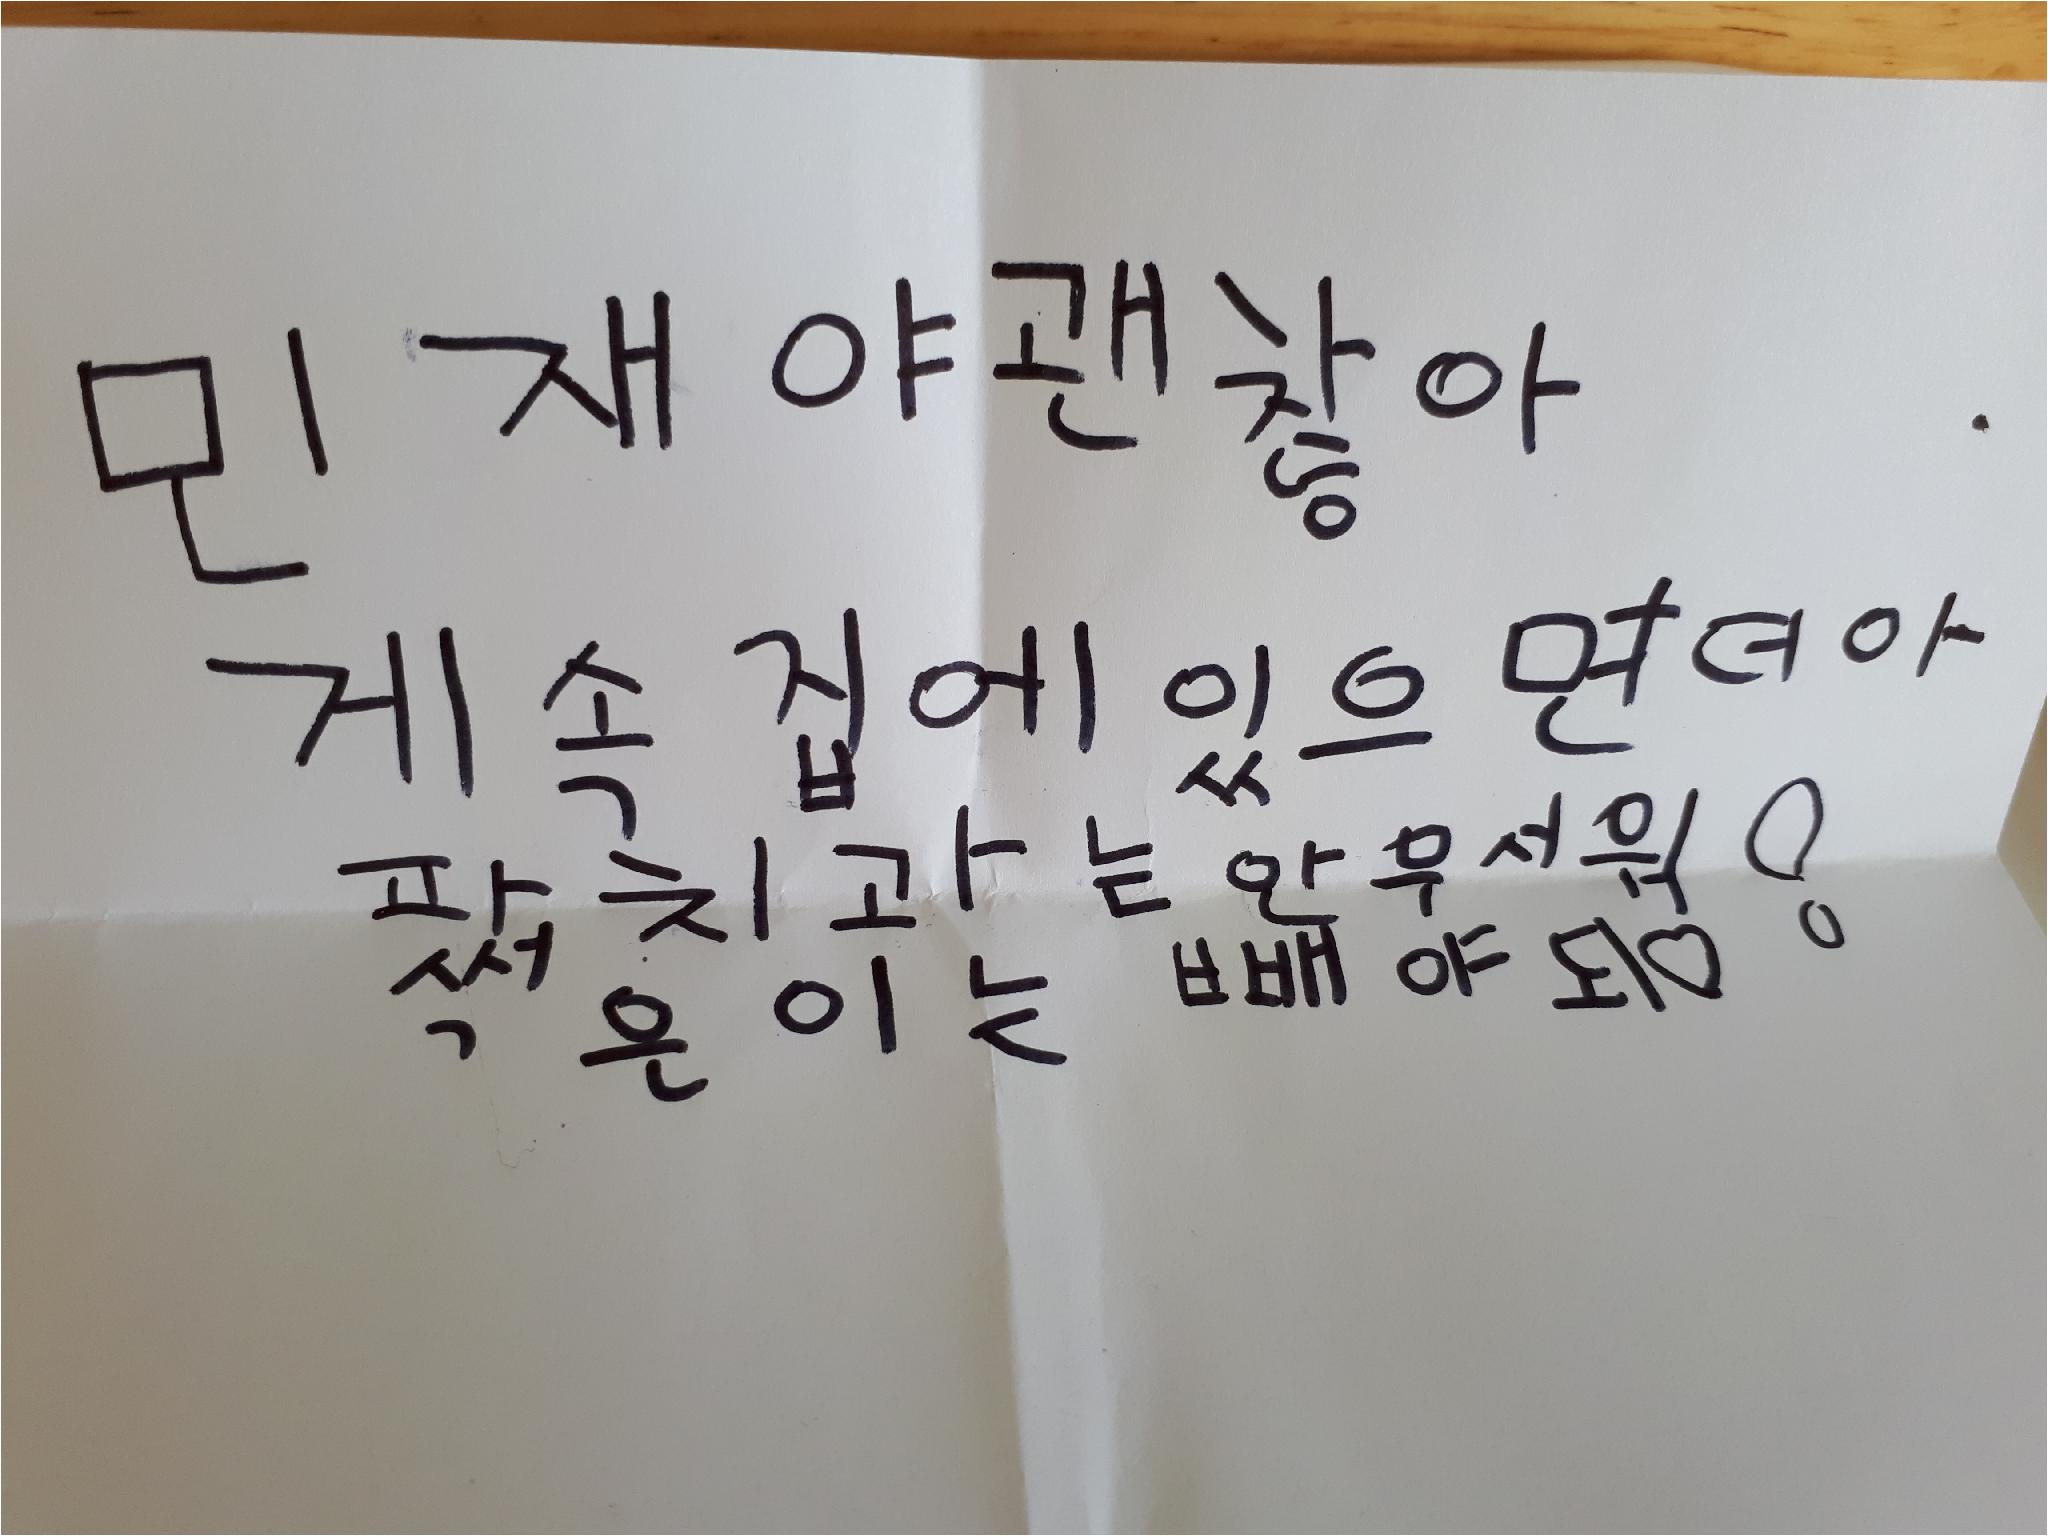 민재야괜찮아
게속집에있으면더아
파치과는안무서워!
썩은이는빼야되♡